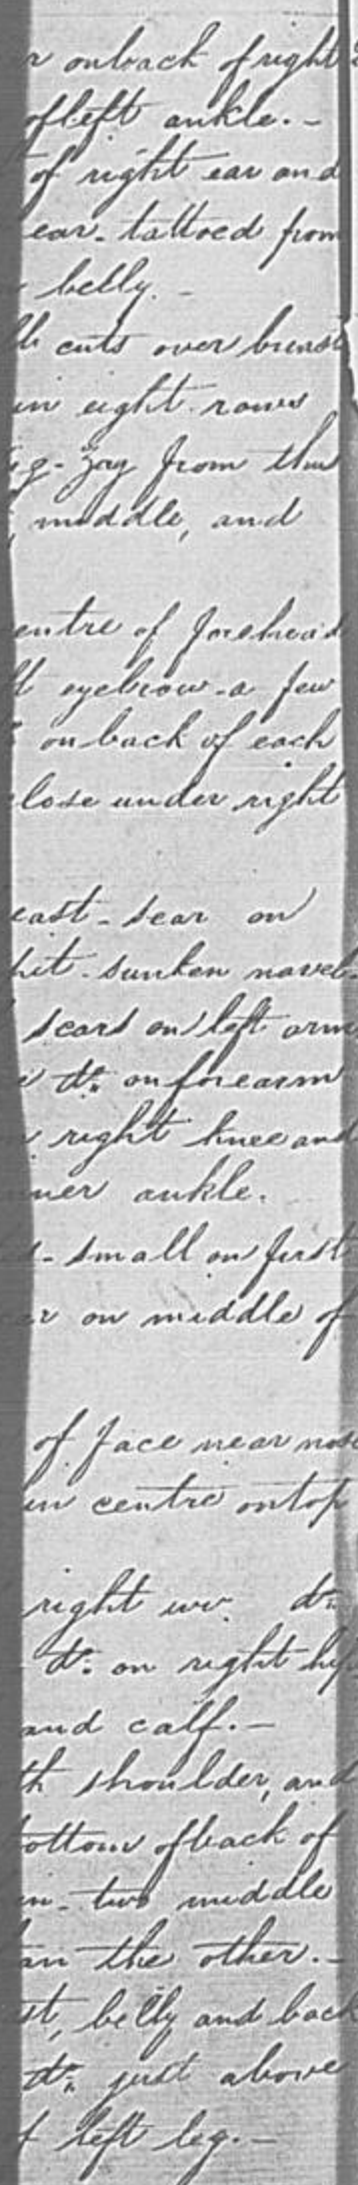 r on back of right
of left ankle. -
of right ear and
ear - tattoed from
belly. -
cuts over breast
in eight rows
g-zag from the
middle, and
entre of forehead
eyebrow - a few
on back of each
lose under right
east - scar on
hit - sunken navel -
scars on left arm
do. on forearm
right knee and
ner ankle.
- small on first
ar on middle of
of face near nose
in centre on top
right do.
do. on right hip
and calf. -
th shoulder, and
ottom of back of
in - two middle
an the other. -
st, belly and back
do. just above
f left leg. -